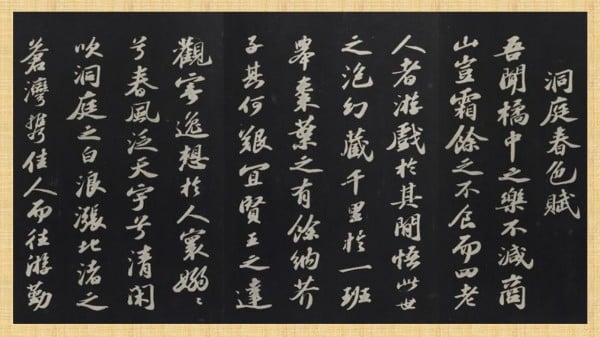 洞庭春色賦
吾聞橘中之樂不減商
山豈霜餘之不食而四老
人者游戲於其間悟此世
之泡幻藏千里於一班
舉棗葉之有餘納芥
子其何艱宜賢王之達
觀寄逸想於人寰嫋〻
兮春風泛天宇兮清閑
吹洞庭之白浪漲北渚之
蒼灣攜佳人而往游勤